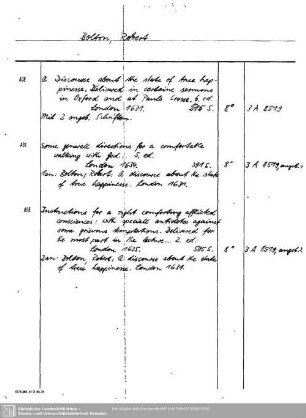 Bolton, Robert
AGE A Discourse about the state of true hap-
pinesse, Delivered in certaine sermons
in Oxford and at Pauls Crosse. 6. ed.
London 1631. S. 8° 3 A 8519
Mit 2 angeb. Schriften.
AGE Some generall directions for a comfortable
walking with God. 5. ed.
London 1638. S. 8° 3 A 8519, angeb. 1
an: Bolton, Robert, A discourse about the state
of true happinesse. London 1631.
AGE Instructions for a right comforting afflicted
consciences: with speciall antidotes against
some grievous temptations. Delivered for
the most part in the lecture... 2. ed.
London 1635. S. 8° 3 A 8519, angeb. 2
an: Bolton, Robert, A discourse about the state
of true happinesse. London 1631.